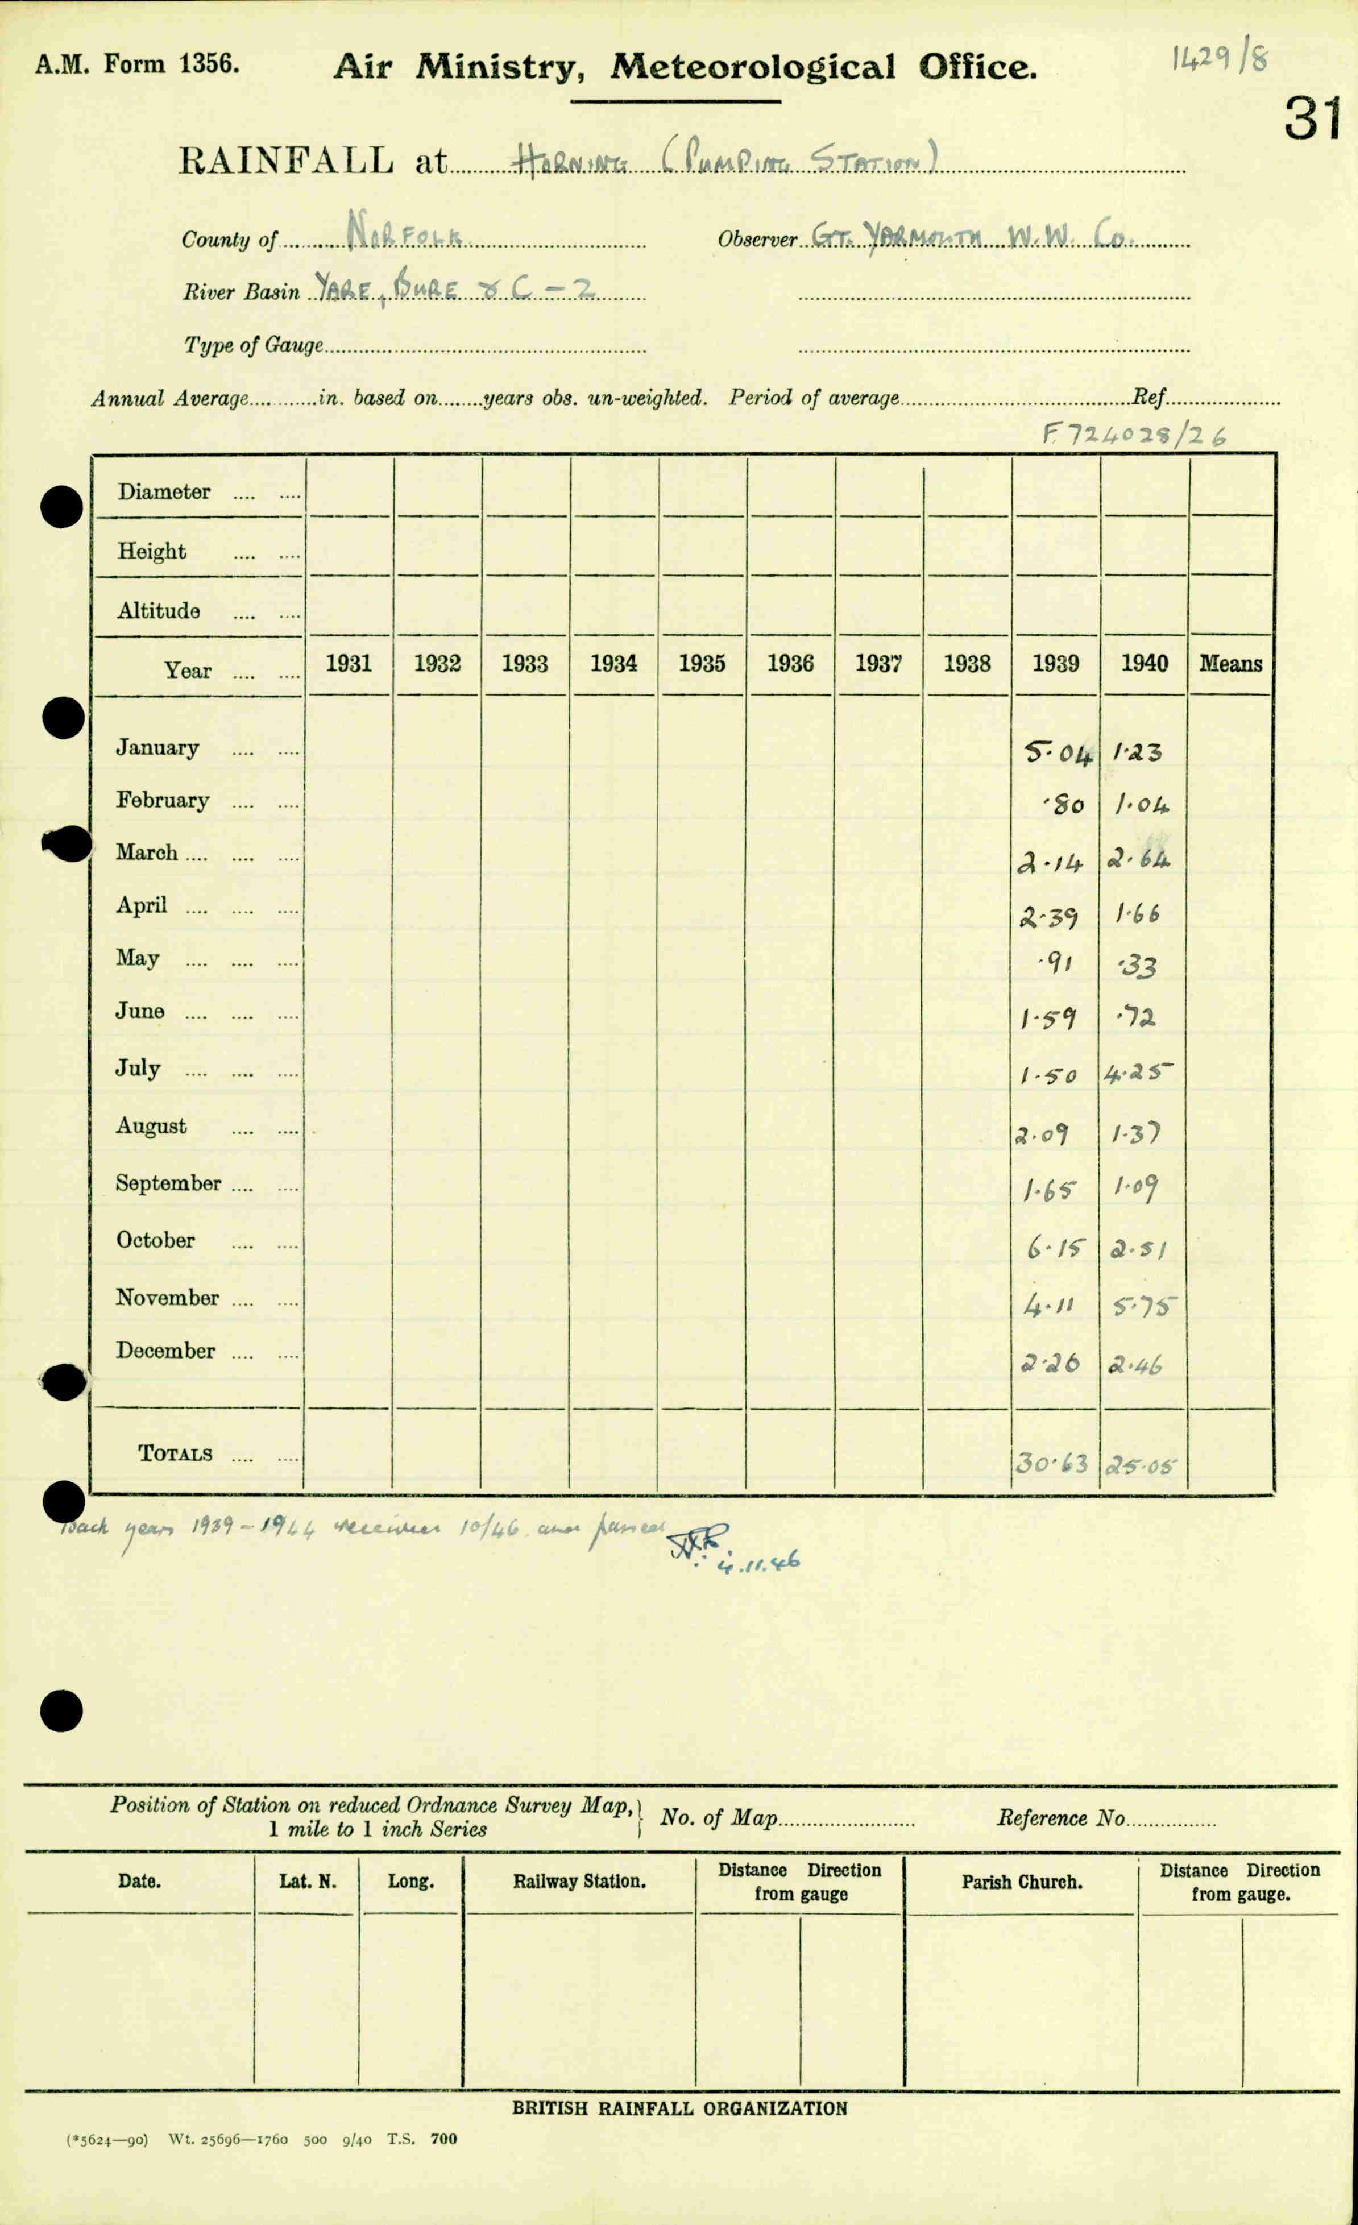 A.M. Form 1356. Air Ministry, Meteorological Office. 1429/8
31
RAINFALL at HORNING (PUMPING STATION)
County of NORFOLK Observer GT. YARMOUTH W.W. Co.
River Basin YARE, BURE & C - 2
Type of Gauge
Annual Average in. based on years obs. un-weighted. Period of average Ref
F.724028/26
Diameter
Height
Altitude
Year 1931 1932 1933 1934 1935 1936 1937 1938 1939 1940 Means
January 5.04 1.23
February .80 1.04
March 2.14 2.64
April 2.39 1.66
May .91 .33
June 1.59 .72
July 1.50 4.25
August 2.09 1.37
September 1.65 1.09
October 6.15 2.51
November 4.11 5.75
December 2.26 2.46
TOTALS 30.63 25.05
Back years 1939-1944 received 10/46 and passed
4.11.46
Position of Station on reduced Ordnance Survey Map, } No. of Map Reference No.
1 mile to 1 inch Series
Date. Lat. N. Long. Railway Station. Distance Direction from gauge Parish Church. Distance Direction from gauge.
BRITISH RAINFALL ORGANIZATION
(*5624—90) Wt. 25696—1760 500 9/40 T.S. 700